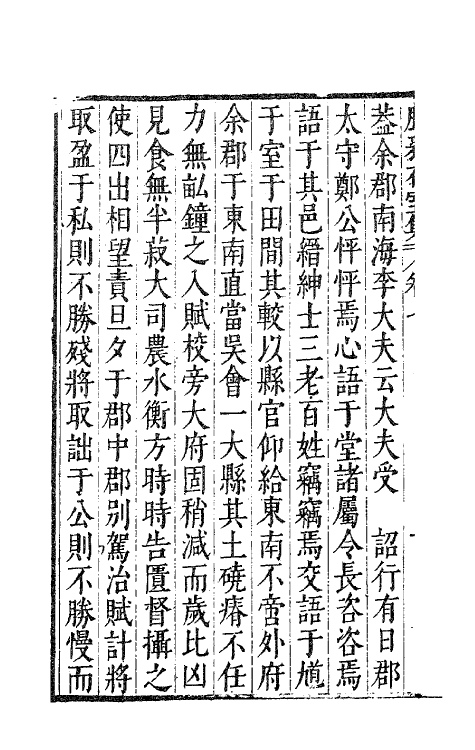 葢余郡南海李大夫云大夫受　詔行有日郡
太守鄭公怦怦焉心語于堂諸屬令長咨咨焉
語于其邑縉紳士三老百姓竊竊焉交語于尯
于室于田間其較以縣官仰給東南不啻外府
余郡于東南直當吳會一大縣其土磽瘠不任
力無畝鐘之入賦校旁大府固稍減而歲比凶
見食無半菽大司農水衡方時時告匱督攝之
使四出相望責旦夕于郡中郡別駕治賦計將
取盈于私則不勝殘將取詘于公則不勝慢而